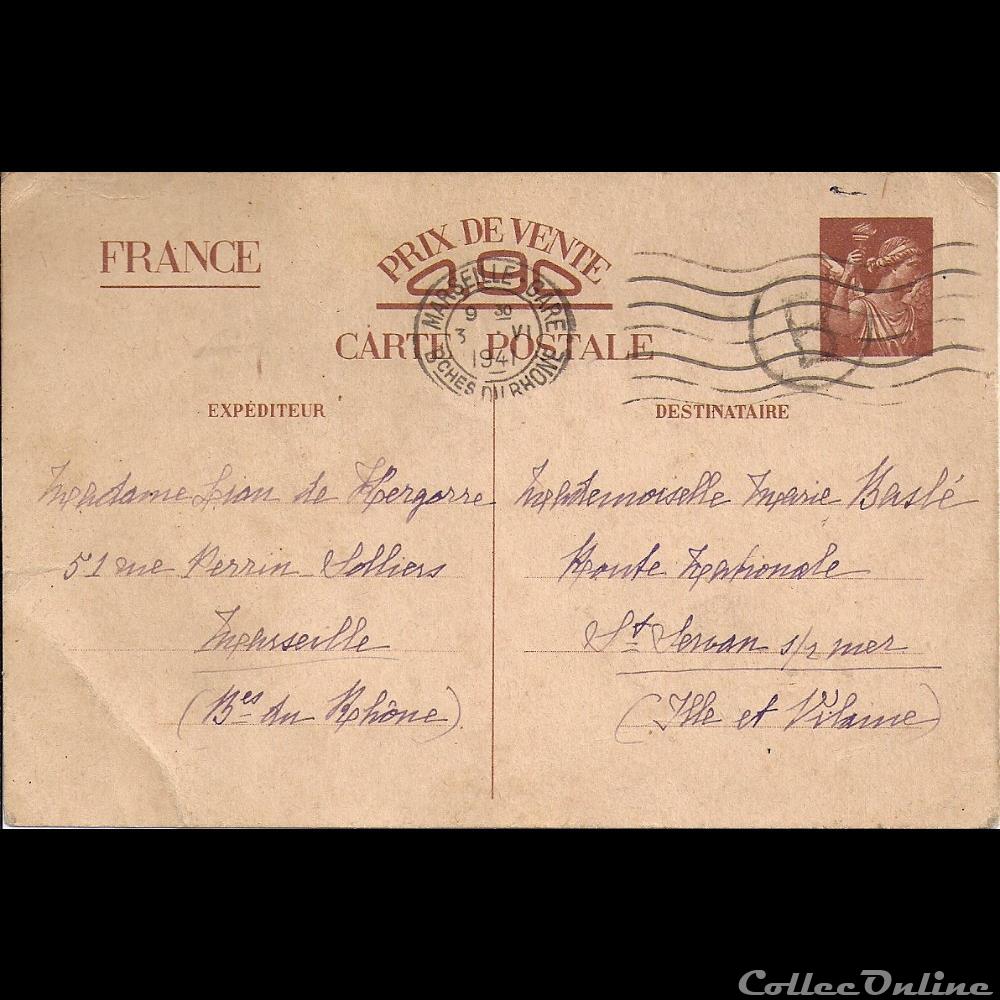 FRANCE
PRIX DE VENTE
0.80
CARTE POSTALE
MARSEILLE GARE
9 30
3 VI
1941
BCHES DU RHONE
EXPÉDITEUR
Madame Lion de Kergorre
51 rue Perrin Solliers
Marseille
(Bes du Rhône)
DESTINATAIRE
Mademoiselle Marie Baslé
Route Nationale
St Servan s/mer
(Ille et Vilaine)
CollecOnline